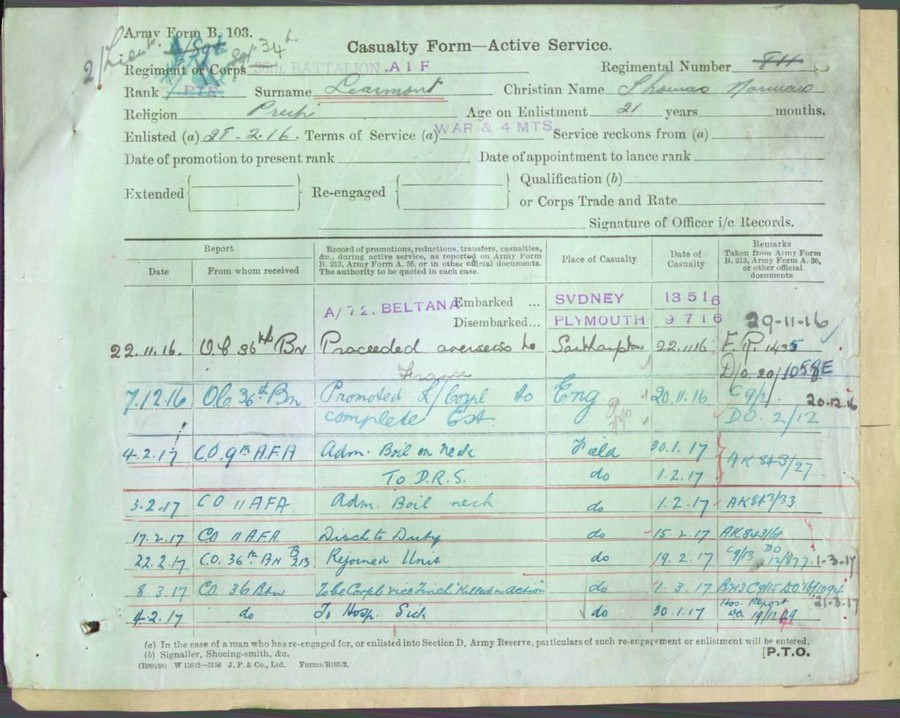 Army Form B. 103.
2/Lieut. A/Sgt
Casualty Form—Active Service.
Regiment or Corps 36th. BATTALION. A I F Regimental Number 811
Rank Pte. Surname Learmont Christian Name Thomas Norman
Religion Presb Age on Enlistment 21 years months.
Enlisted (a) 28-2.16. Terms of Service (a) WAR & 4 MTS Service reckons from (a)
Date of promotion to present rank Date of appointment to lance rank
Extended Re-engaged Qualification (b)
or Corps Trade and Rate
Signature of Officer i/c Records.
Report
Date From whom received
Record of promotions, reductions, transfers, casualties,
&c., during active service, as reported on Army Form
B. 213, Army Form A. 36, or in other official documents.
The authority to be quoted in each case.
Place of Casualty
Date of
Casualty
Remarks
Taken from Army Form
B. 213, Army Form A. 36,
or other official
documents
A/72. BELTANA Embarked ... SYDNEY 13 5 16
Disembarked... PLYMOUTH 9 7 16
29-11-16
22.11.16. O.C 36th Bn Proceeded overseas to Southampton 22.11.16 E.R. 1435
D/O. 20/1058E
7.12.16 OC 36th Bn Promoted L/Corpl to Eng 20.11.16 C9/2 20.12.16
complete Est. D.O. 2/12
4.2.17 C.O. 9th A.F.A Adm. Boil on neck Field 30.1.17
To D.R.S. do 1.2.17
3.2.17 CO 11 AFA Adm. Boil neck do 1.2.17
17.2.17 CO 11 AFA Disch to Duty do 15.2.17
22.2.17 C.O. 36th Bn B 213 Rejoined Unit do 19.2.17 1-3.17
8.3.17 CO 36 Btn To be Corpl vice Finch Killed in action do 1.3.17
21-3.17
4.2.17 do To Hosp. Sick do 30.1.17 Hos. Report
(a) In the case of a man who has re-engaged for, or enlisted into Section D, Army Reserve, particulars of such re-engagement or enlistment will be entered.
(b) Signaller, Shoeing-smith, &c.
[P.T.O.